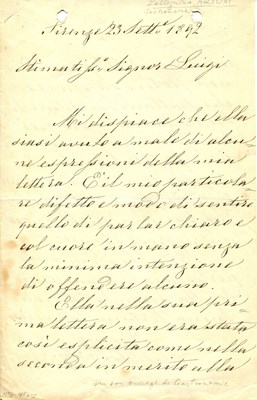 Firenze 23 Sett.e 1892
Stimatiss.o Signor Luigi
Mi dispiace che ella
siasi avuto a male di alcu-
ne espressioni della mia
lettera. È il mio particola-
re difetto e modo di sentire
quello di parlar chiaro e
col cuore in mano senza
la minima intenzione
di offendere alcuno.
Ella nella sua pri-
ma lettera non era stata
così esplicita come nella
seconda in merito alla